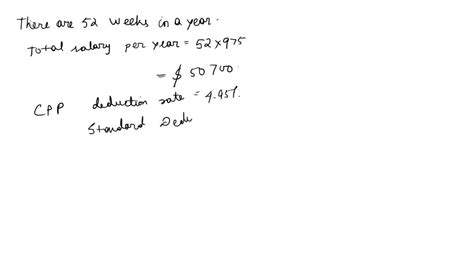 There are 52 weeks in a year.
Total salary per year = 52 × 975
= $ 50 700.
CPP deduction rate = 4.95%.
Standard Dedu